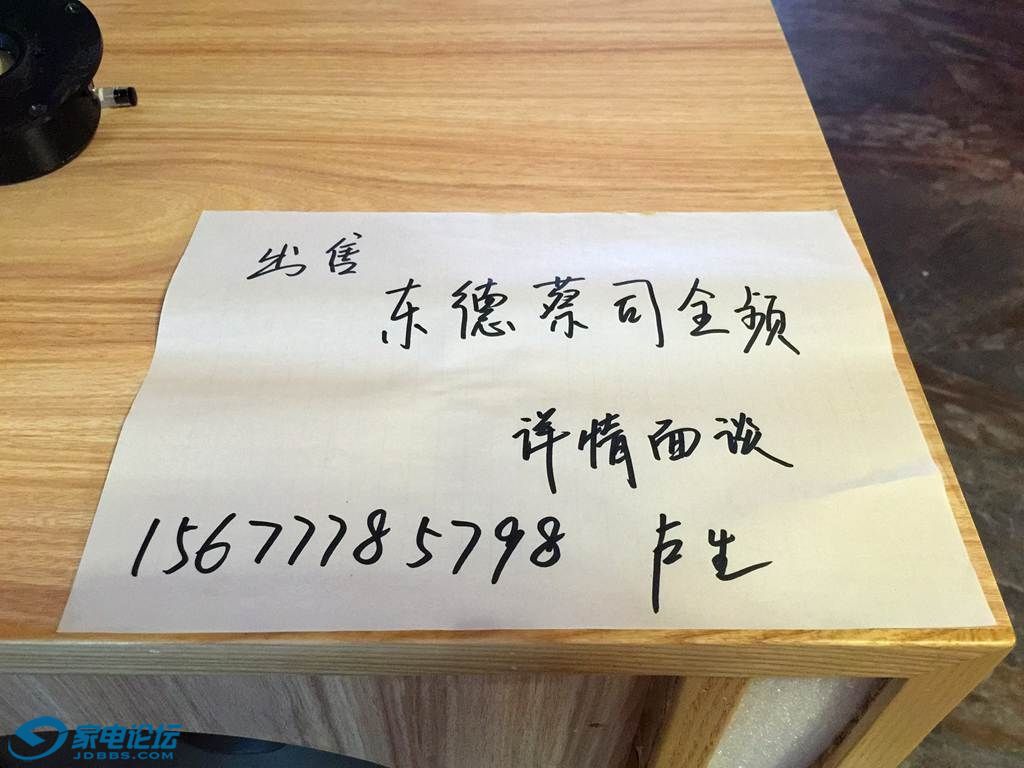 出售
东德蔡司全频
详情面谈
15677785798 卢生
家电论坛
JDBBS.COM